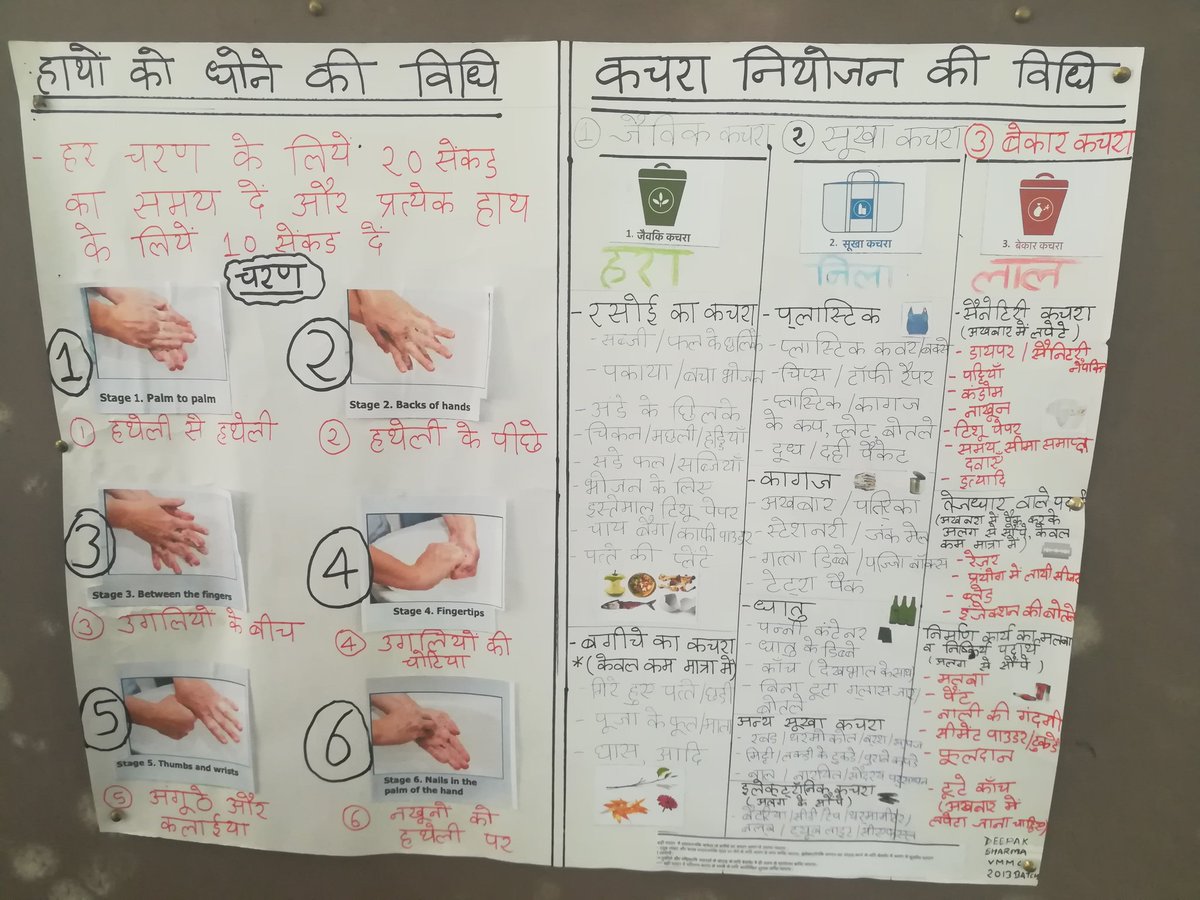 हाथों को धोने की विधि
- हर चरण के लिये २० सेंकड
का समय दें और प्रत्येक हाथ
के लिये 10 सेंकड दें
चरण
1
Stage 1. Palm to palm
① हथेली से हथेली
2
Stage 2. Backs of hands
② हथेली के पीछे
3
Stage 3. Between the fingers
③ उगलियों के बीच
4
Stage 4. Fingertips
④ उगलियों की
चोटिया
5
Stage 5. Thumbs and wrists
⑤ अगूठे और
कलाईया
6
Stage 6. Nails in the
palm of the hand
⑥ नखूनो को
हथेली पर
कचरा नियोजन की विधि
① जैविक कचरा
1. जैवकि कचरा
हरा
- रसोई का कचरा
- सब्जी / फल के छिलके
- पकाया / बचा भोजन
- अंडे के छिलके
- चिकन / मछली / हड्डियाँ
- सडे फल / सब्जियाँ
- भोजन के लिए
इस्तेमाल टिशू पेपर
- चाय बैग / काफी पाउडर
- पत्ते की प्लेटे
- बगीचे का कचरा
* (केवल कम मात्रा में)
- गिरे हुए पत्ते /
- पूजा के फूल / माला
- घास, आदि
② सूखा कचरा
2. सूखा कचरा
निला
- प्लास्टिक
- प्लास्टिक कवर / बक्से
- चिप्स / टॉफी रैपर
- प्लास्टिक / कागज
के कप, प्लेट, बोतले
- दूध / दही पैकेट
- कागज
- अखबार / पत्रिका
- स्टेशनरी / जंक मेल
- गत्ता डिब्बे / पिज्जा बॉक्स
- टेट्रा पैक
- धातु
- पन्नी कंटेनर
- धातु के डिब्बे
- काँच (देखभाल के साथ)
- बिना टूटा गलास
बोतले
अन्य सूखा कचरा
- मिट्टी / लकडी के टुकडे / पुराने कपडे
इलेक्टरीनिक कचरा
(अलग से सौंपे)
③ बेकार कचरा
3. बेकार कचरा
लाल
- सैनेटिरी कचरा
(अखबार में लपेटे)
- डायपर / सैनिटिरी
नैपकिन
- पट्टियाँ
- कंडोम
- नाखून
- टिशू पेपर
- समय सीमा समाप्त
दवाएँ
- इत्यादि
- रेजर
- ब्लेड
- इंजेक्शन की बोतले
- मलबा
- पैंट
- नाली की गंदगी
- सीमेंट पाउडर / टुकडे
- फूलदान
- टूटे काँच
(अखबार में
लपेटा जाना चाहिए)
DEEPAK
SHARMA
VMMC
2013 BATCH